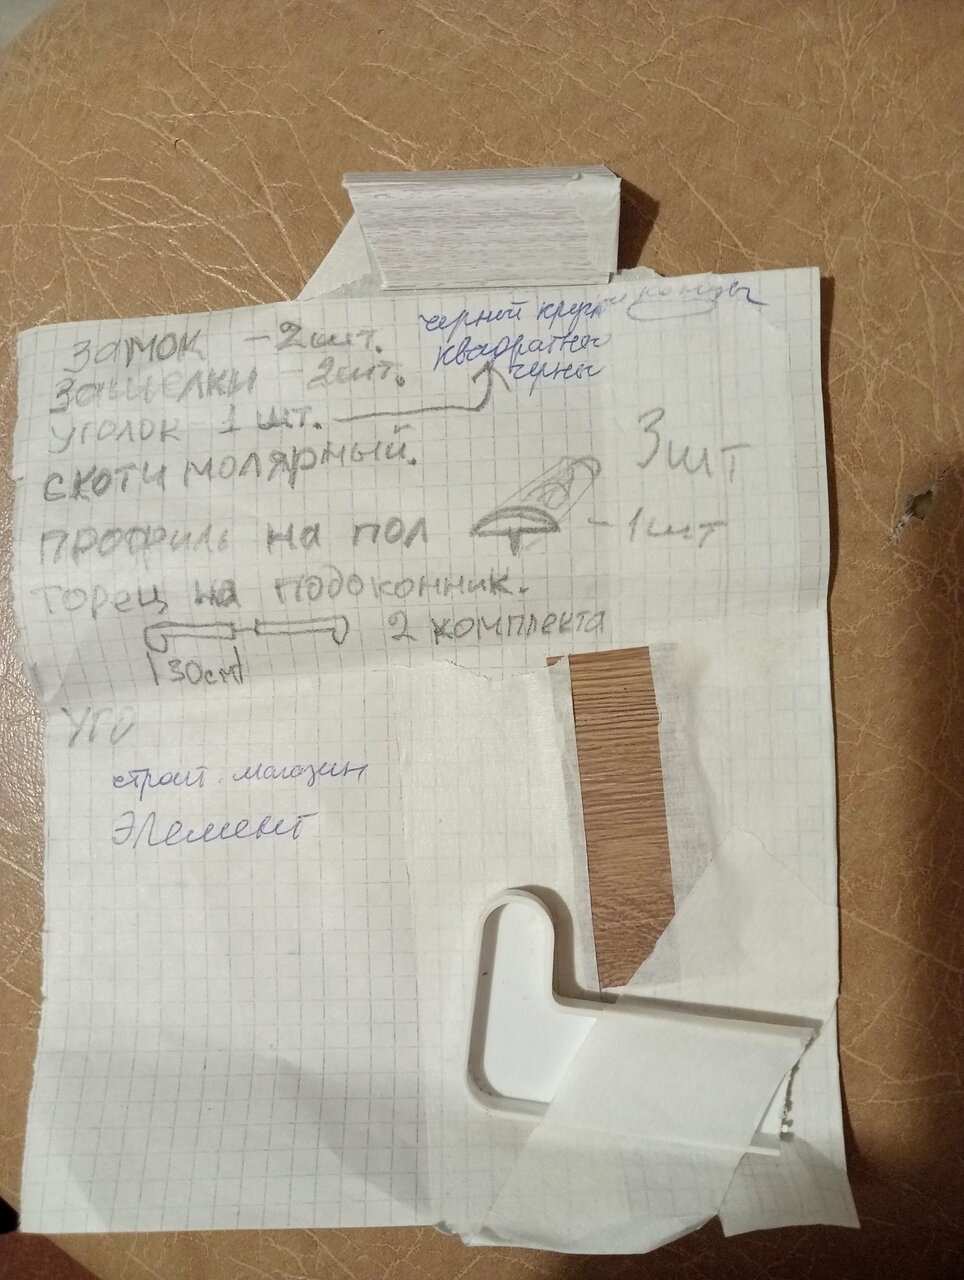 замок - 2шт.
черной кругл концы
защелки 2шт.
квадратной
черны
уголок 1 шт.
скотч молярный.
3шт
профиль на пол - 1шт
торец на подоконник.
2 комплекта
30см
уго
строит. магазин
Элемент